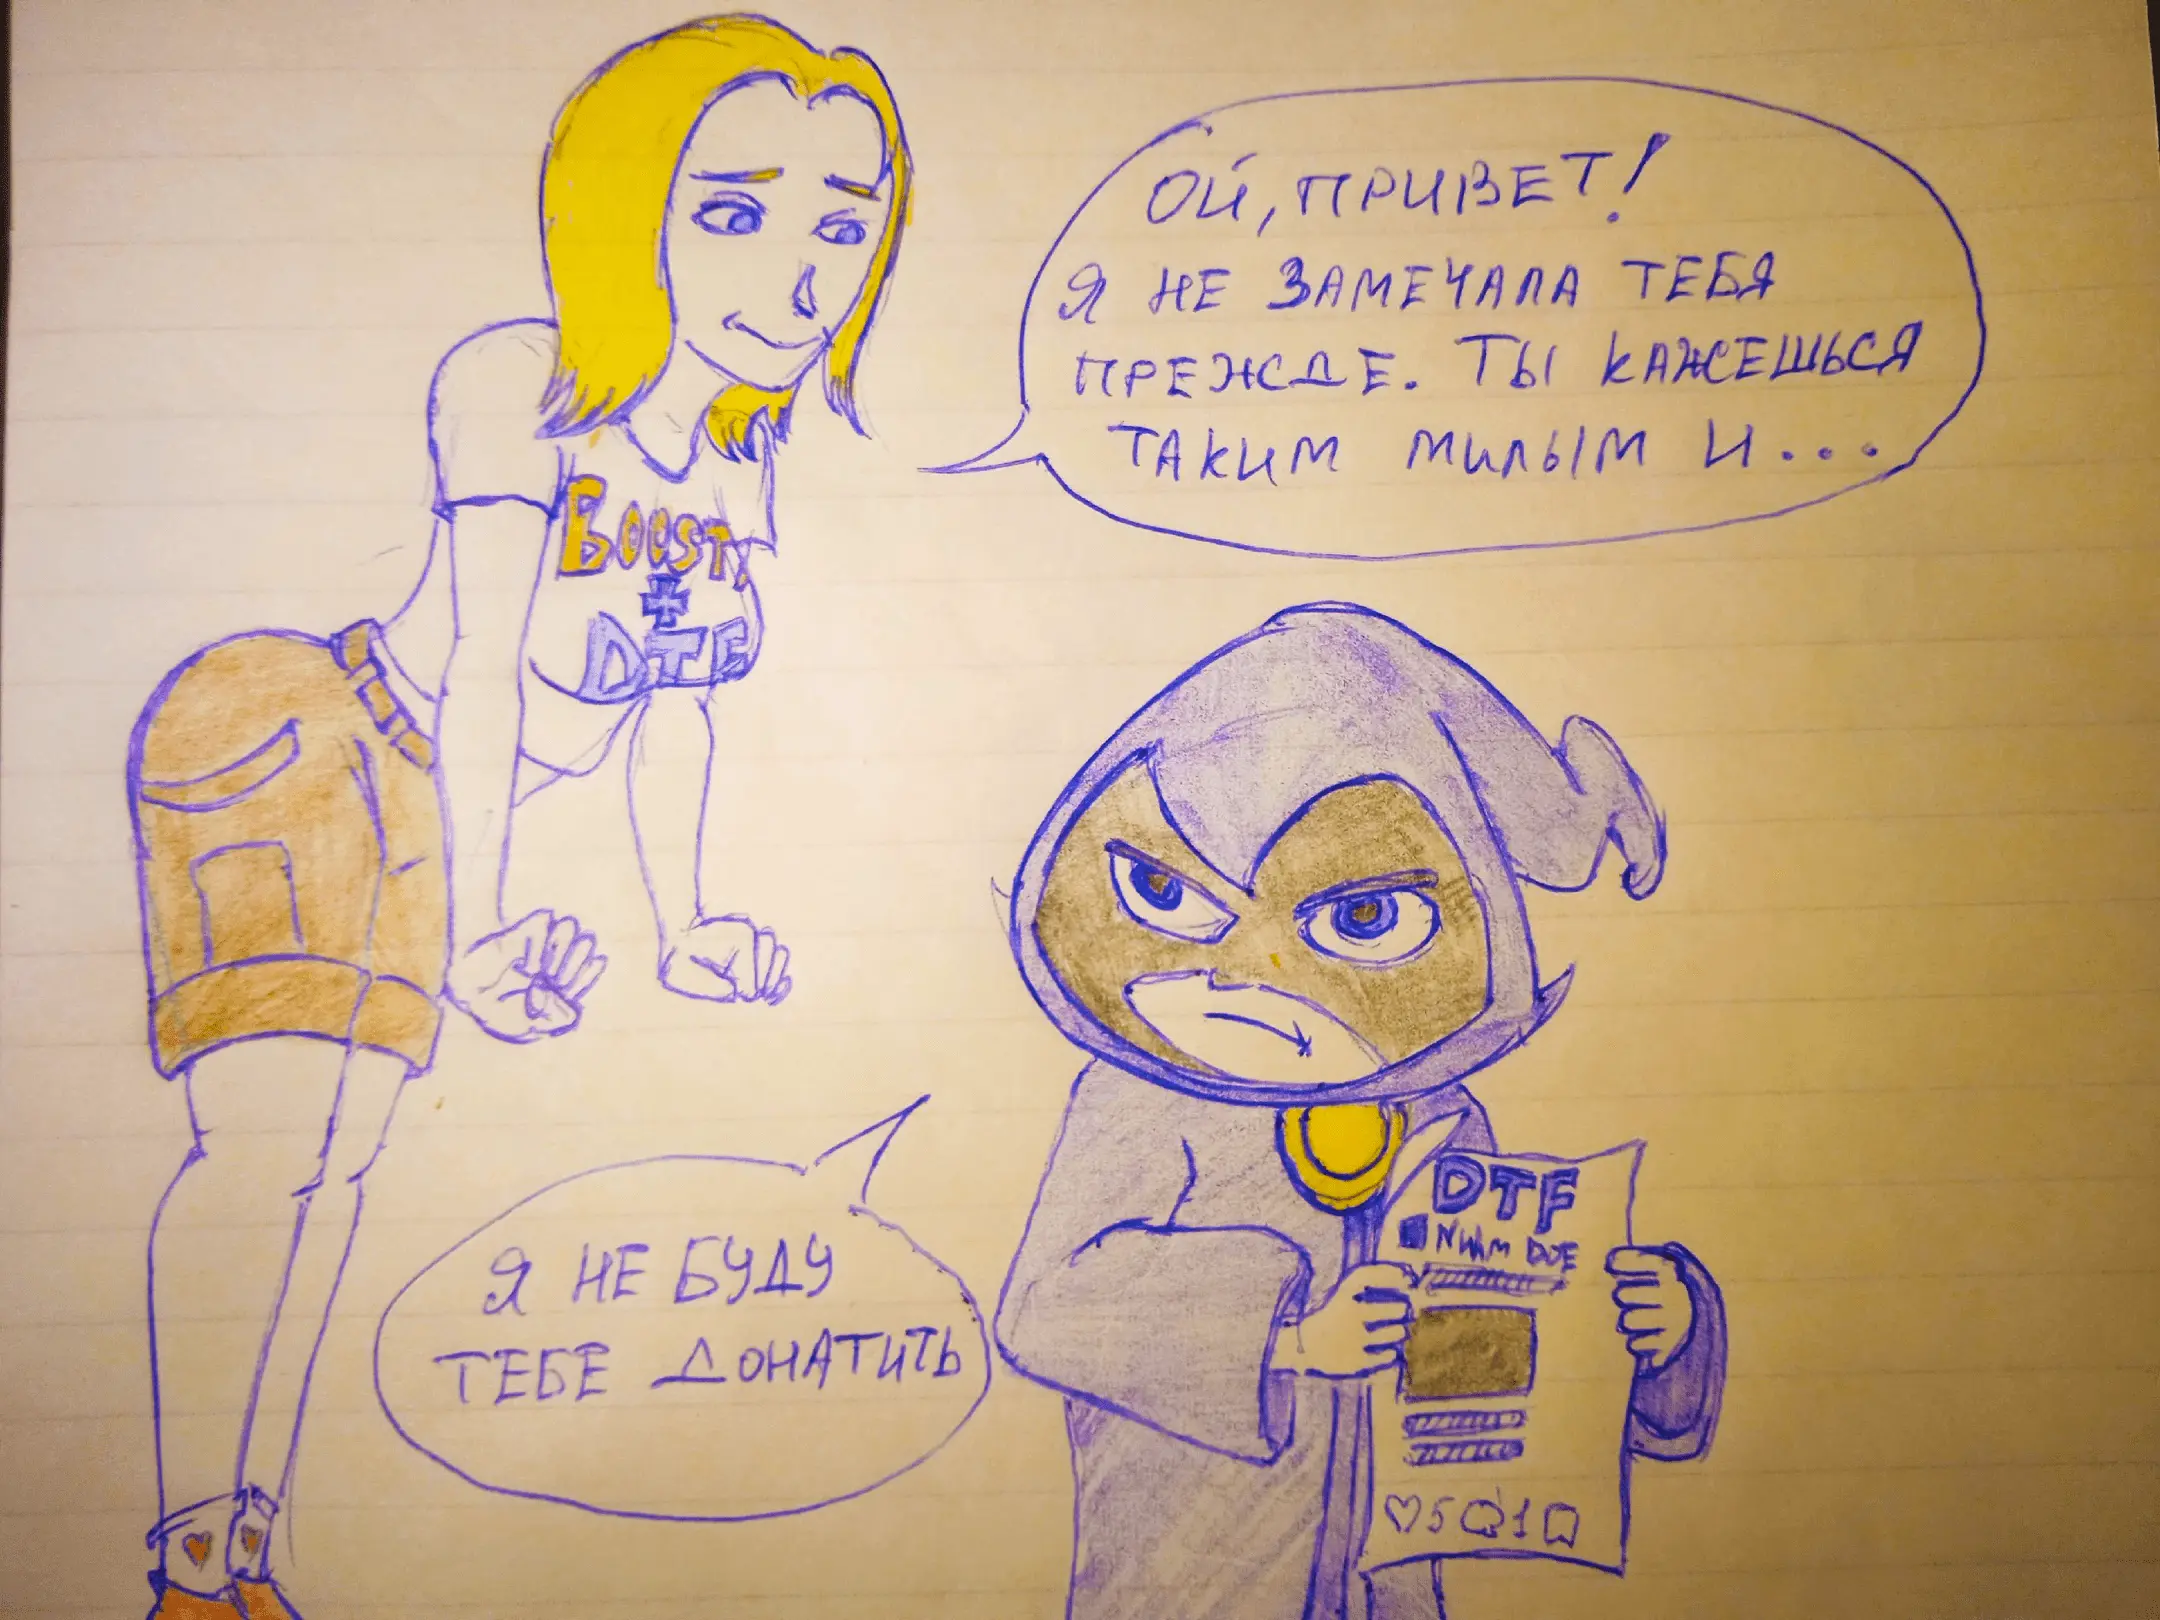 ОЙ, ПРИВЕТ!
Я НЕ ЗАМЕЧАЛА ТЕБЯ
ПРЕЖДЕ. ТЫ КАЖЕШЬСЯ
ТАКИМ МИЛЫМ И...
BOOSTY
+
DTF
Я НЕ БУДУ
ТЕБЕ ДОНАТИТЬ
DTF
DOE
5 1